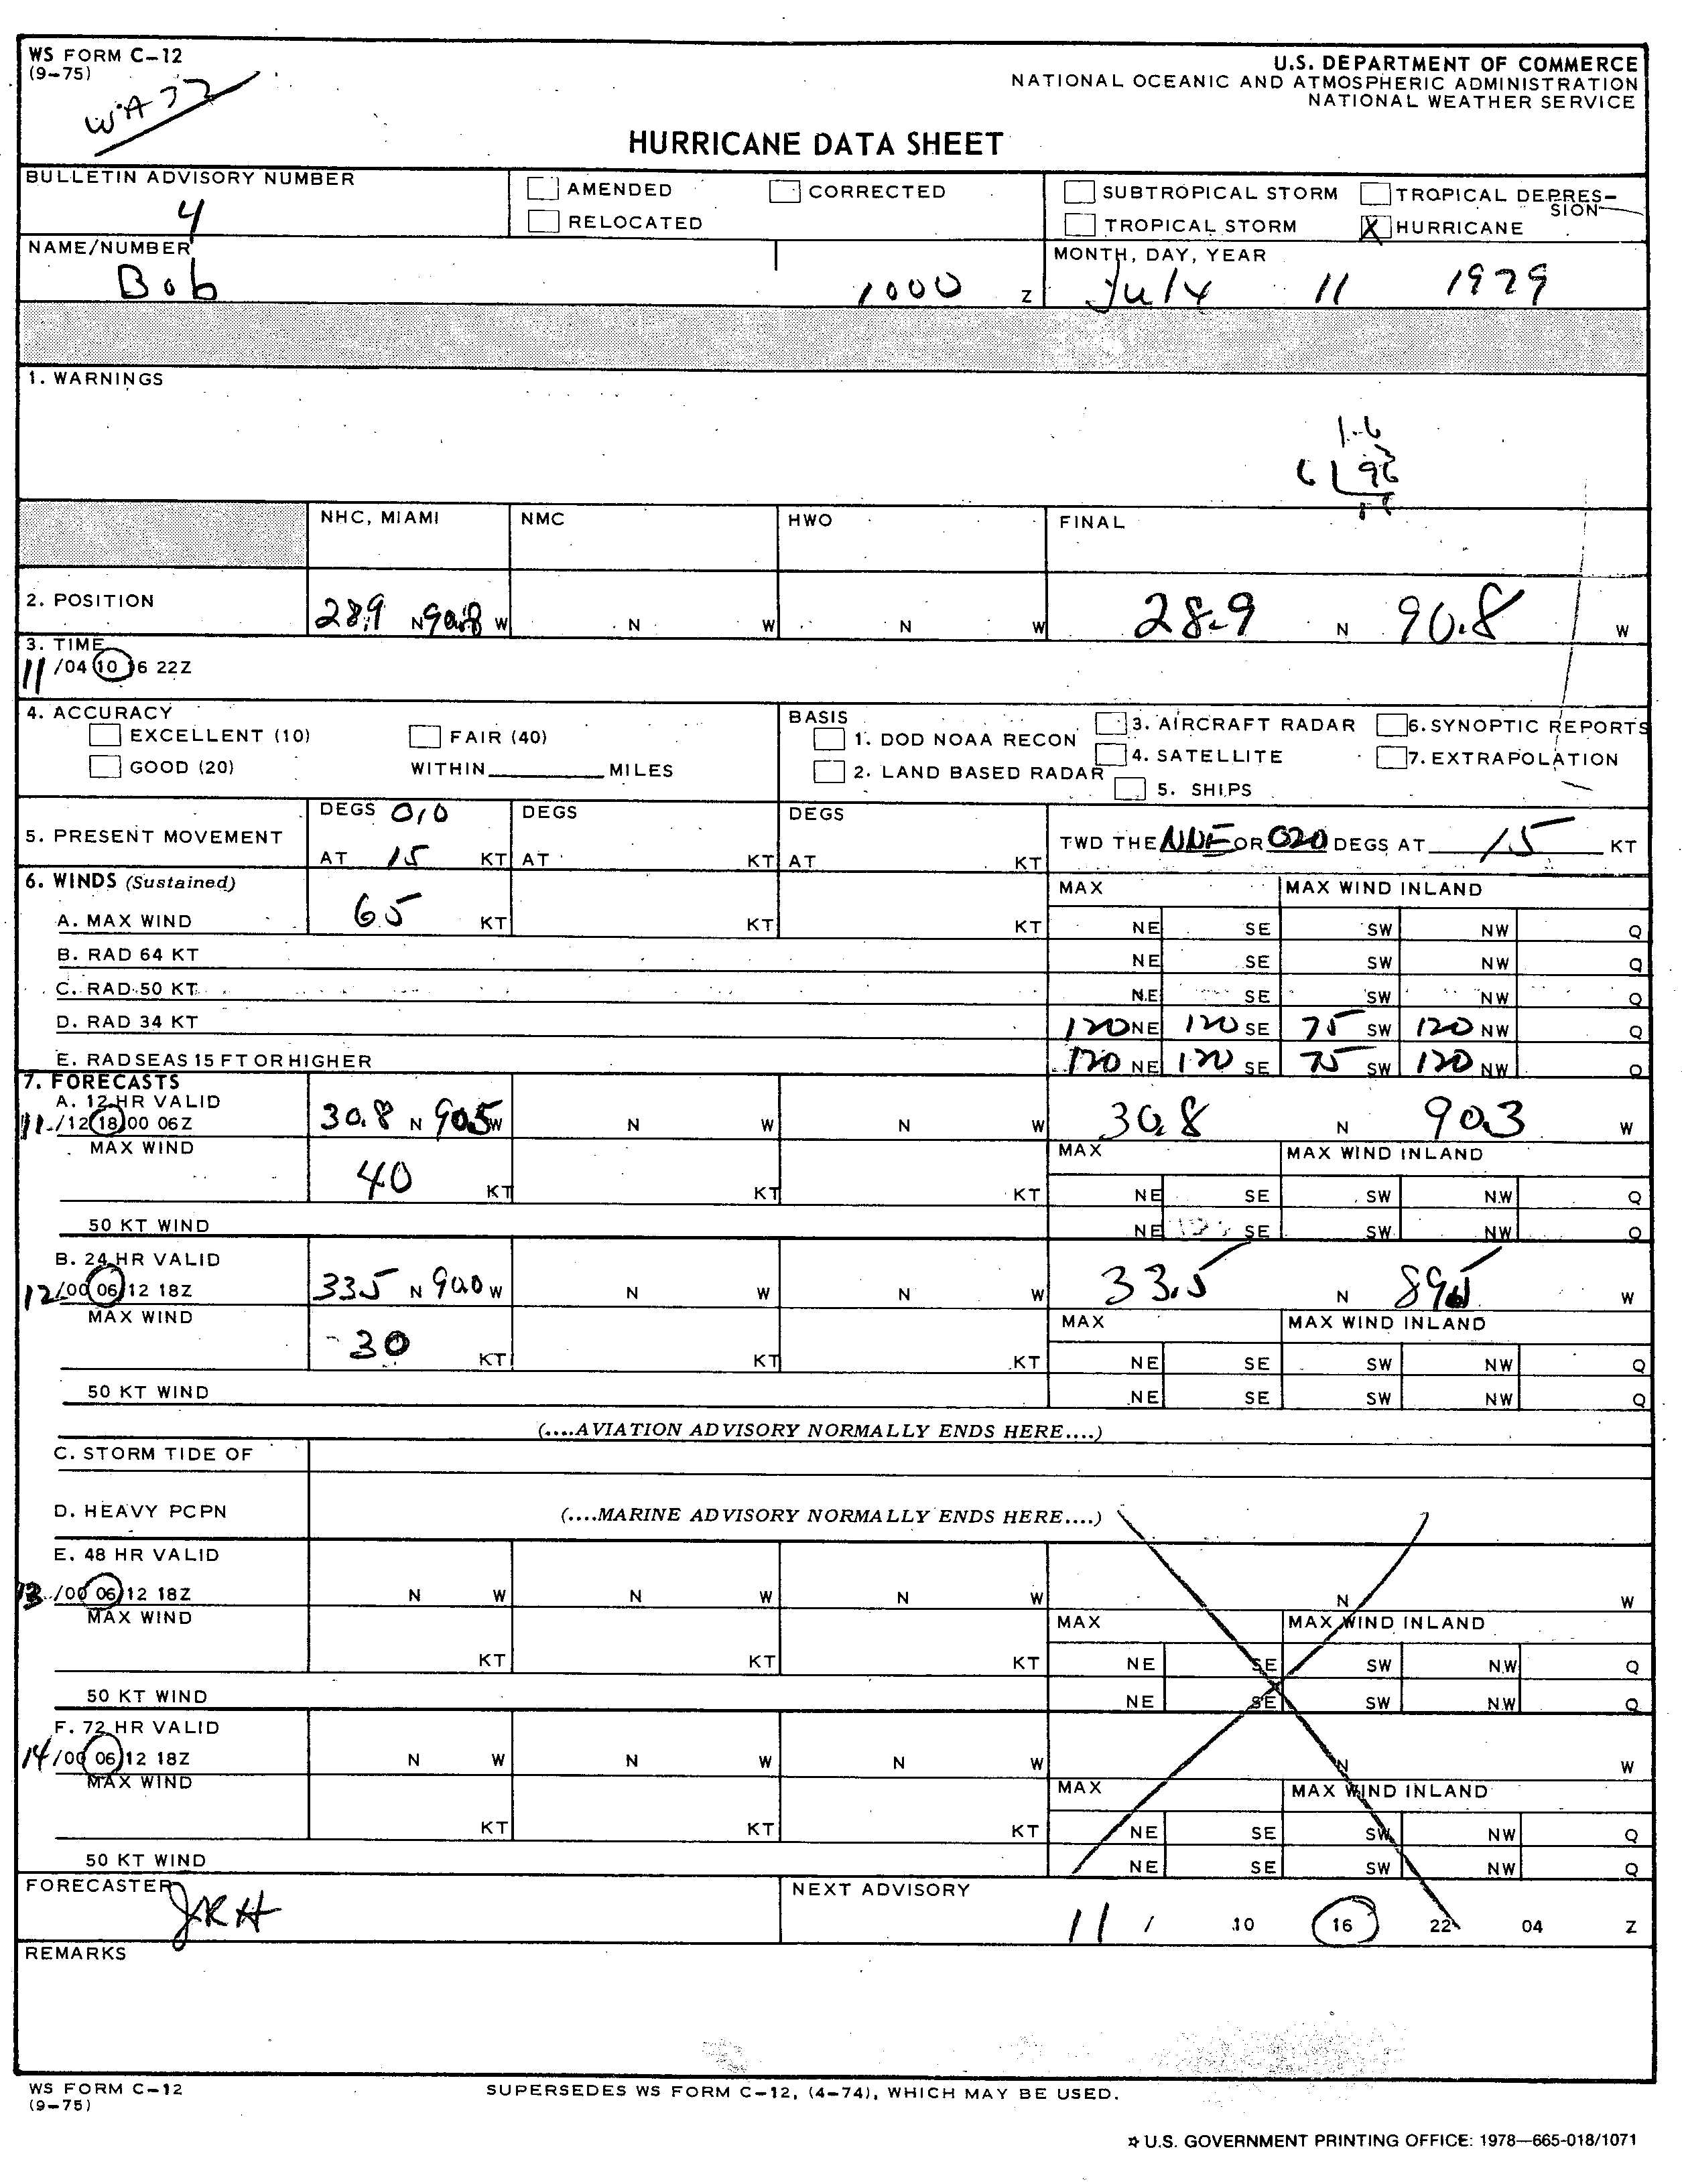 WS FORM C-12
(9-75)
U.S. DEPARTMENT OF COMMERCE
NATIONAL OCEANIC AND ATMOSPHERIC ADMINISTRATION
NATIONAL WEATHER SERVICE
HURRICANE DATA SHEET
BULLETIN ADVISORY NUMBER
4
AMENDED CORRECTED
RELOCATED
SUBTROPICAL STORM TROPICAL DEPRES-SION
TROPICAL STORM X HURRICANE
NAME/NUMBER
Bob 1000 Z
MONTH, DAY, YEAR
July 11 1979
1. WARNINGS
1.6
6 96
NHC, MIAMI NMC HWO FINAL
2. POSITION 28.9 N 90.8 W N W N W 28.9 N 90.8 W
3. TIME
11/04 10 16 22Z
4. ACCURACY
EXCELLENT (10) FAIR (40)
GOOD (20) WITHIN MILES
BASIS
1. DOD NOAA RECON 3. AIRCRAFT RADAR 6. SYNOPTIC REPORTS
2. LAND BASED RADAR 4. SATELLITE 7. EXTRAPOLATION
5. SHIPS
5. PRESENT MOVEMENT
DEGS 010 DEGS DEGS
AT 15 KT AT KT AT KT
TWD THE NNE OR 020 DEGS AT 15 KT
6. WINDS (Sustained) MAX MAX WIND INLAND
A. MAX WIND 65 KT KT KT NE SE SW NW Q
B. RAD 64 KT NE SE SW NW Q
C. RAD 50 KT NE SE SW NW Q
D. RAD 34 KT 120 NE 120 SE 75 SW 120 NW Q
E. RAD SEAS 15 FT OR HIGHER 120 NE 120 SE 75 SW 120 NW Q
7. FORECASTS
A. 12 HR VALID
11/12 18 00 06Z 30.8 N 90.5 W N W N W 30.8 N 90.3 W
MAX WIND MAX MAX WIND INLAND
40 KT KT KT NE SE SW NW Q
50 KT WIND NE SE SW NW Q
B. 24 HR VALID
12/00 06 12 18Z 33.5 N 90.0 W N W N W 33.5 N 89.5 W
MAX WIND MAX MAX WIND INLAND
30 KT KT KT NE SE SW NW Q
50 KT WIND NE SE SW NW Q
(....AVIATION ADVISORY NORMALLY ENDS HERE....)
C. STORM TIDE OF
D. HEAVY PCPN (....MARINE ADVISORY NORMALLY ENDS HERE....)
E. 48 HR VALID
13/00 06 12 18Z N W N W N W N W
MAX WIND MAX MAX WIND INLAND
KT KT KT NE SE SW NW Q
50 KT WIND NE SE SW NW Q
F. 72 HR VALID
14/00 06 12 18Z N W N W N W N W
MAX WIND MAX MAX WIND INLAND
KT KT KT NE SE SW NW Q
50 KT WIND NE SE SW NW Q
FORECASTER JRH
NEXT ADVISORY 11 / 10 16 22 04 Z
REMARKS
WS FORM C-12
(9-75)
SUPERSEDES WS FORM C-12, (4-74), WHICH MAY BE USED.
☆ U.S. GOVERNMENT PRINTING OFFICE: 1978—665-018/1071